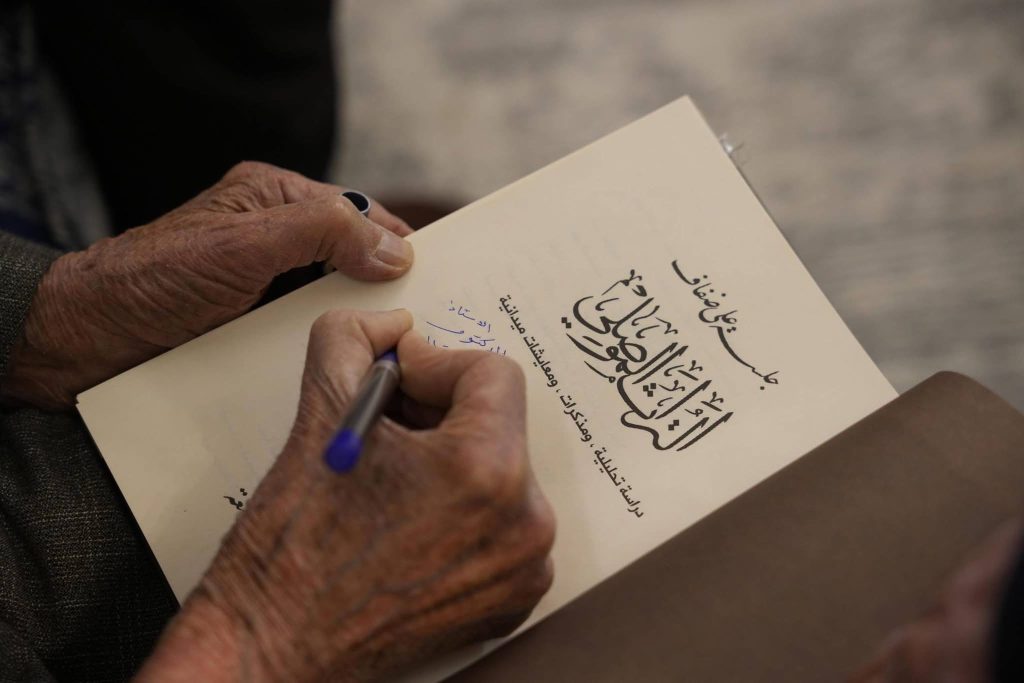 جلسة على ضفاف
التراث الموصلي
دراسة تحليلية ، ومذكرات ، ومعايشات ميدانية
الاستاذ
الدكتور